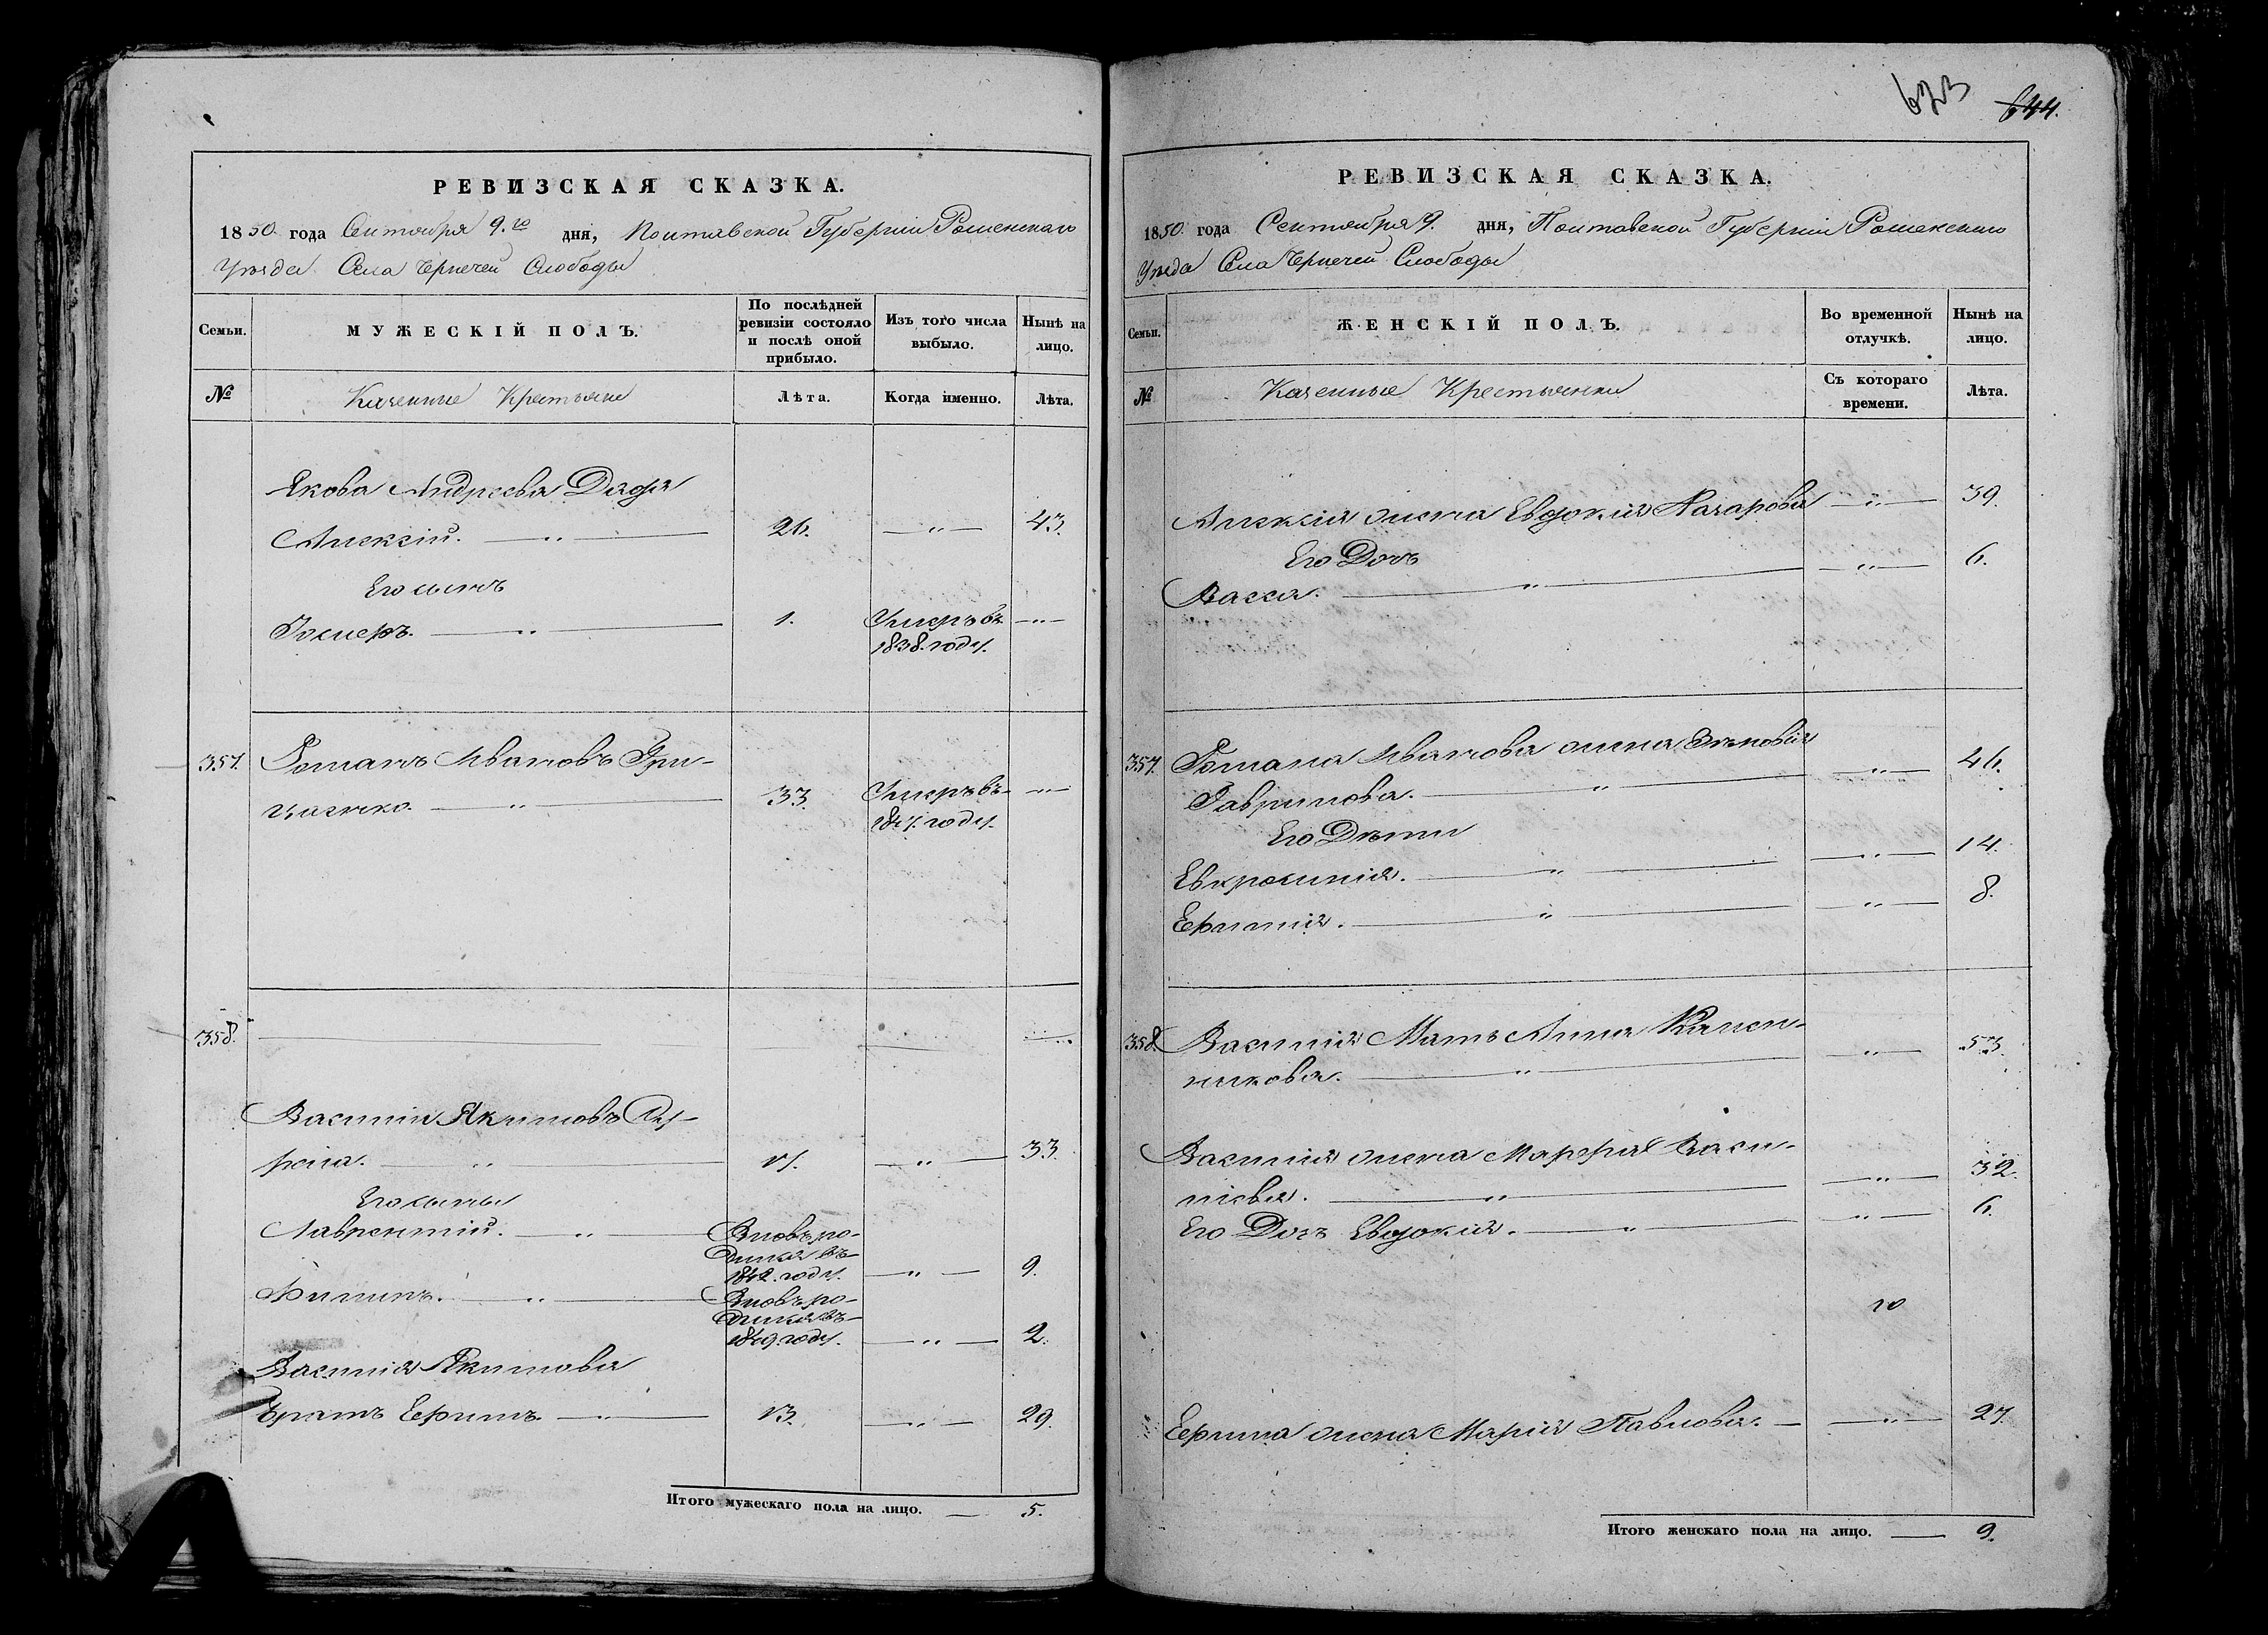 РЕВИЗСКАЯ СКАЗКА.
1850 года Сентября 9.го дня, Полтавской Губернии Роменскаго
Уезда Села Чернечей Слободы
Семьи.
МУЖЕСКІЙ ПОЛЪ.
По послѣдней
ревизіи состояло
и послѣ оной
прибыло.
Изъ того числа
выбыло.
Нынѣ на
лицо.
№
Казенные Крестьяне
Лѣта.
Когда именно.
Лѣта.
Якова Андреева Дядя
Алексій. 26. 43.
Его сынъ
1. Умеръ въ
1838. году.
357. Романъ Ивановъ Гри-
цаенко. 33. Умеръ въ
году.
358.
Василій Якимовъ
33.
Его сыны
Лаврентій. Вновь ро-
дился въ
1842. году. 9.
Филипъ. Вновь ро-
дился въ
1849. году. 2.
Василія Якимова
Братъ Ефимъ. 13. 29.
Итого мужескаго пола на лицо. 5.
623 644.
РЕВИЗСКАЯ СКАЗКА.
1850 года Сентября 9. дня, Полтавской Губерніи Роменскаго
Уезда Села Чернечей Слободы
Семьи.
ЖЕНСКІЙ ПОЛЪ.
Во временной
отлучкѣ.
Нынѣ на
лицо.
№
Казенные Крестьянки
Съ котораго
времени.
Лѣта.
Алексія жена Евдокія Назарова 39.
Его Дочь
Васса. 6.
357. Романа Иванова жена Зѣновія
Гаврилова. 46.
Его Дѣти
Евфросинія. 14.
Ефимія. 8.
358. Василія Мать Анна Кален-
никова. 53.
Василія жена Марфа Васи-
ліева. 32.
Его Дочь Евдокія. 6.
Ефима жена Марія Павлова. 27.
Итого женскаго пола на лицо. 9.